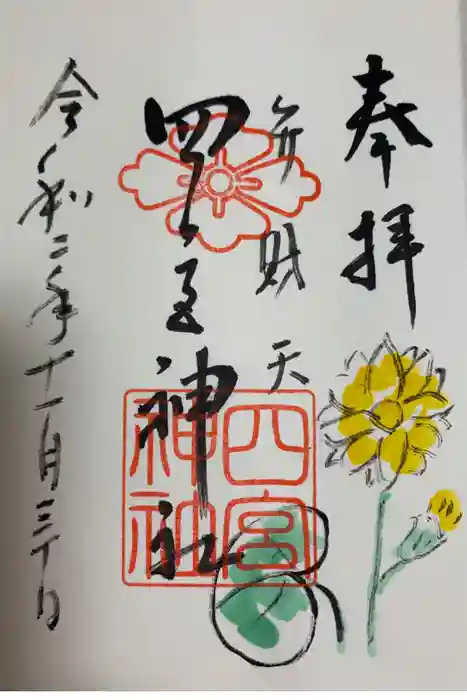 奉拝
弁財天
四宮神社
四宮
神社
令和二年十一月三十日